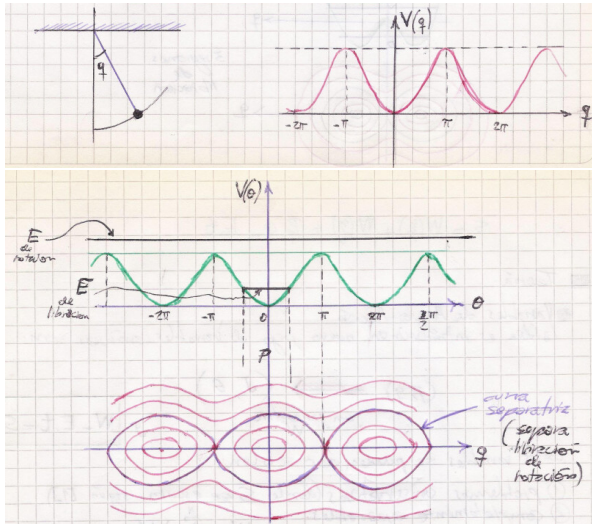 V(q)
q
-2π -π π 2π q
V(θ)
E
de
rotación
E
de
libración
-2π -π 0 π 2π θ
p
curva
separatriz
(separa
libración
de
rotación)
q